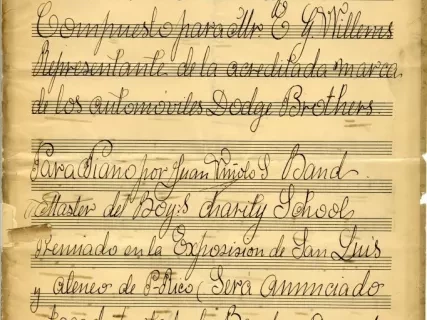 Compuesto para Mr E G Willems
Representante de la acreditada marca
de los automoviles Dodge Brothers.
Para Piano por Juan Viñolo S Band
Master del Boy:s charity School
Premiado en la Exposision de San Luis
y Ateneo de P-Rico (Sera anunciado